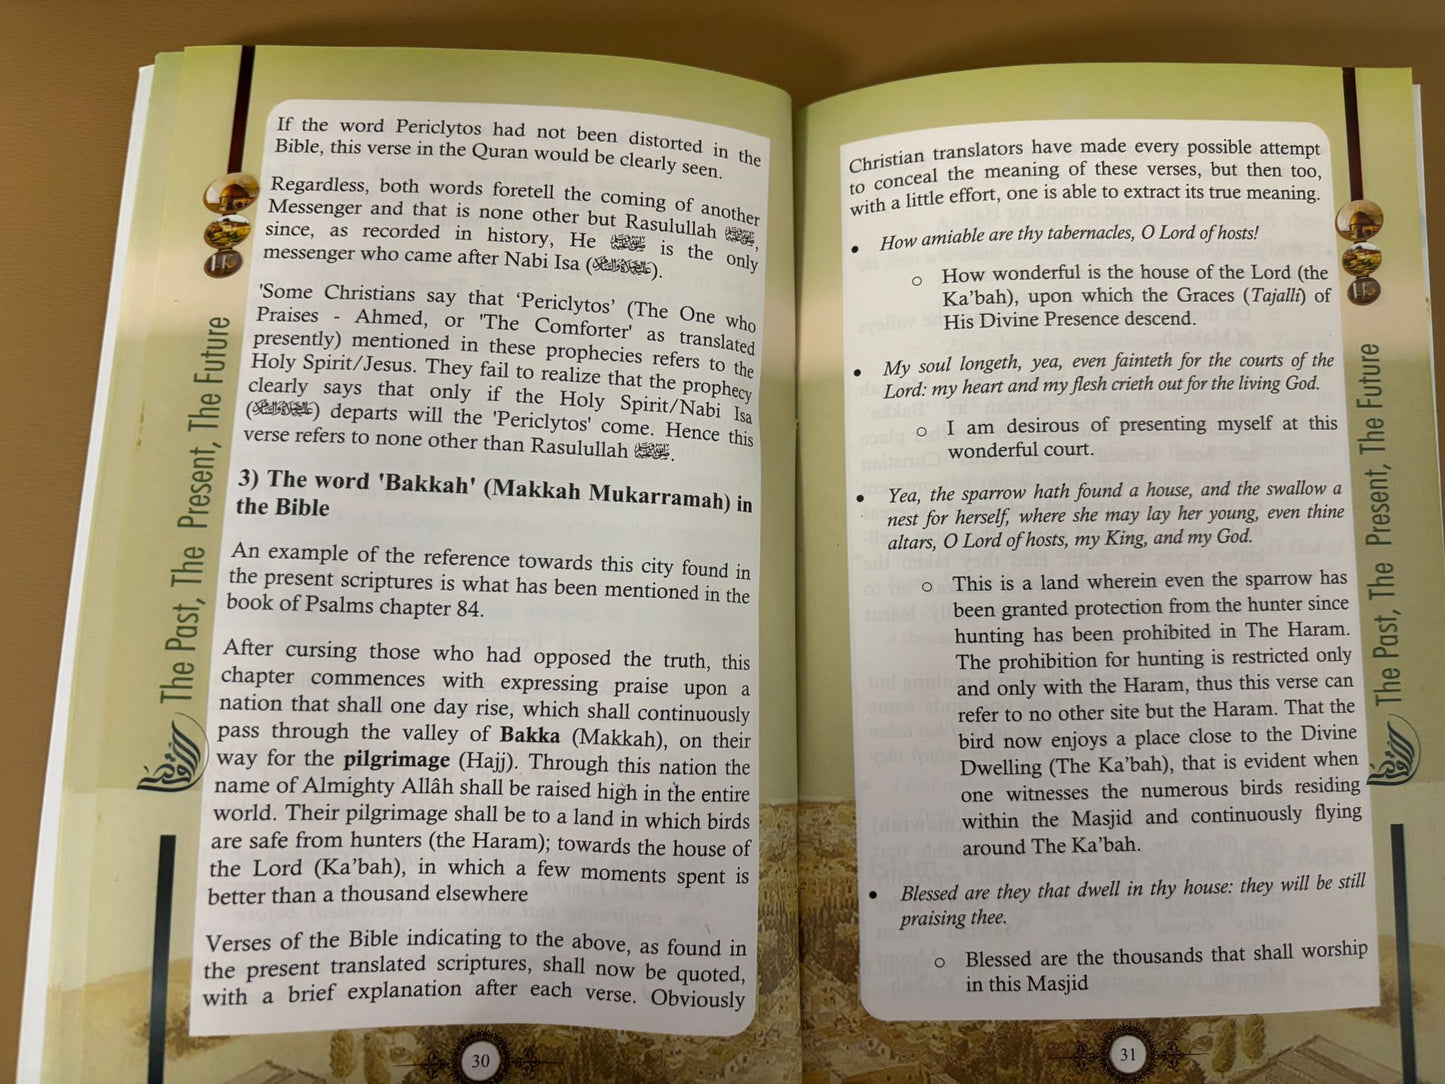 If the word Periclytos had not been distorted in the
Bible, this verse in the Quran would be clearly seen.
Regardless, both words foretell the coming of another
Messenger and that is none other but Rasulullah ﷺ,
since, as recorded in history, He ﷺ is the only
messenger who came after Nabi Isa (عليه الصلاة والسلام).
'Some Christians say that ‘Periclytos’ (The One who
Praises - Ahmed, or 'The Comforter' as translated
presently) mentioned in these prophecies refers to the
Holy Spirit/Jesus. They fail to realize that the prophecy
clearly says that only if the Holy Spirit/Nabi Isa
(عليه الصلاة والسلام) departs will the 'Periclytos' come. Hence this
verse refers to none other than Rasulullah ﷺ.
3) The word 'Bakkah' (Makkah Mukarramah) in
the Bible
An example of the reference towards this city found in
the present scriptures is what has been mentioned in the
book of Psalms chapter 84.
After cursing those who had opposed the truth, this
chapter commences with expressing praise upon a
nation that shall one day rise, which shall continuously
pass through the valley of Bakka (Makkah), on their
way for the pilgrimage (Hajj). Through this nation the
name of Almighty Allâh shall be raised high in the entire
world. Their pilgrimage shall be to a land in which birds
are safe from hunters (the Haram); towards the house of
the Lord (Ka’bah), in which a few moments spent is
better than a thousand elsewhere
Verses of the Bible indicating to the above, as found in
the present translated scriptures, shall now be quoted,
with a brief explanation after each verse. Obviously
The Past, The Present, The Future
30
Christian translators have made every possible attempt
to conceal the meaning of these verses, but then too,
with a little effort, one is able to extract its true meaning.
• How amiable are thy tabernacles, O Lord of hosts!
o How wonderful is the house of the Lord (the
Ka’bah), upon which the Graces (Tajallî) of
His Divine Presence descend.
• My soul longeth, yea, even fainteth for the courts of the
Lord: my heart and my flesh crieth out for the living God.
o I am desirous of presenting myself at this
wonderful court.
• Yea, the sparrow hath found a house, and the swallow a
nest for herself, where she may lay her young, even thine
altars, O Lord of hosts, my King, and my God.
o This is a land wherein even the sparrow has
been granted protection from the hunter since
hunting has been prohibited in The Haram.
The prohibition for hunting is restricted only
and only with the Haram, thus this verse can
refer to no other site but the Haram. That the
bird now enjoys a place close to the Divine
Dwelling (The Ka’bah), that is evident when
one witnesses the numerous birds residing
within the Masjid and continuously flying
around The Ka’bah.
• Blessed are they that dwell in thy house: they will be still
praising thee.
o Blessed are the thousands that shall worship
in this Masjid
The Past, The Present, The Future
31